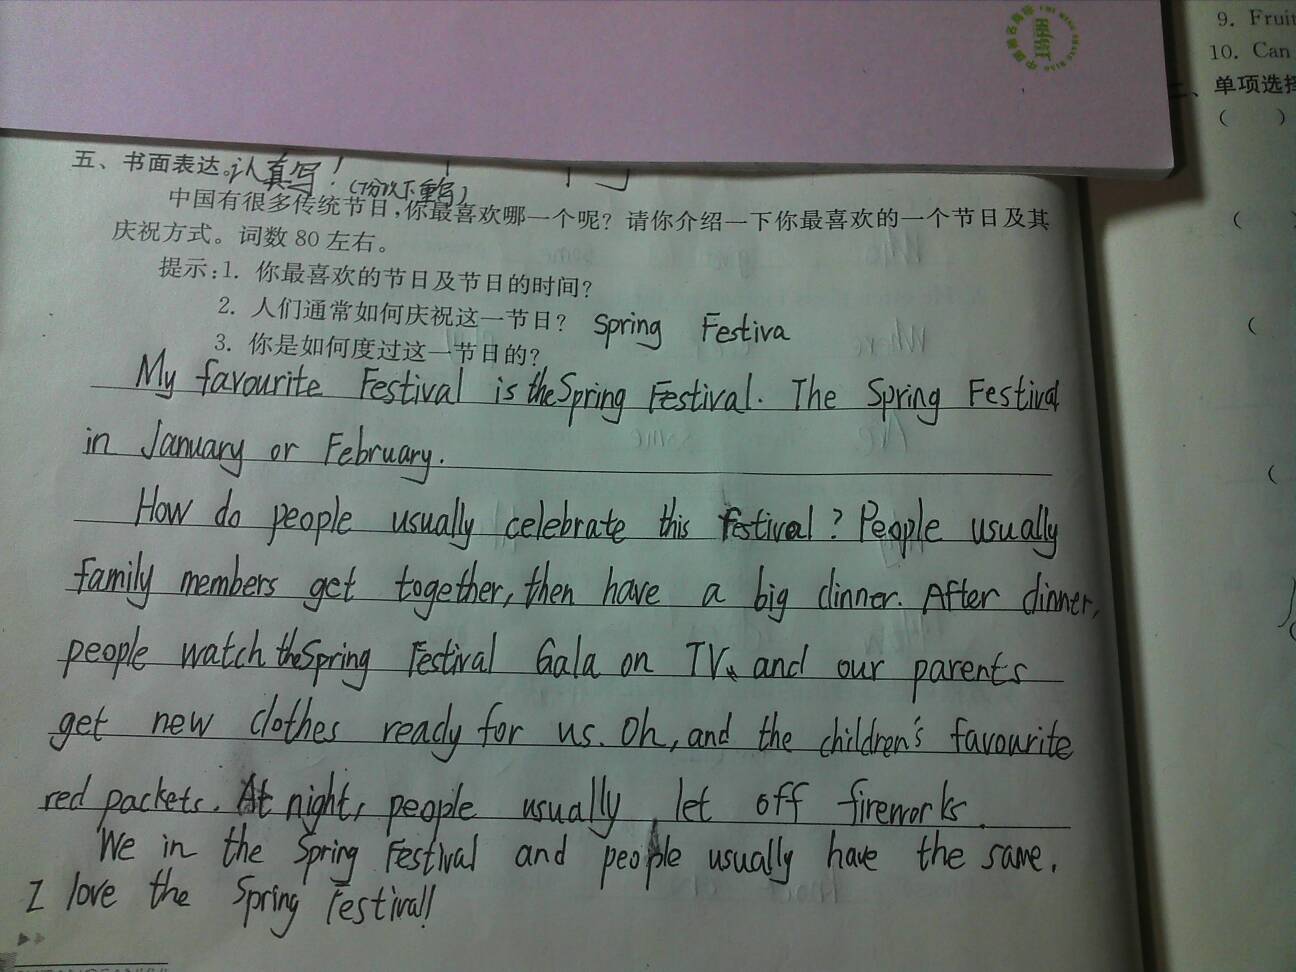 9. Fruit
10. Can
单项选择
( )
(
(
(
五、书面表达。认真写！(7分以下重写)
中国有很多传统节日,你最喜欢哪一个呢？请你介绍一下你最喜欢的一个节日及其
庆祝方式。词数 80 左右。
提示:1. 你最喜欢的节日及节日的时间?
2. 人们通常如何庆祝这一节日?
3. 你是如何度过这一节日的?
Spring Festiva
My favourite Festival is the Spring Festival. The Spring Festival
in January or February.
How do people usually celebrate this festival? People usually
family members get together, then have a big dinner. After dinner,
people watch the Spring Festival Gala on TV, and our parents
get new clothes ready for us. Oh, and the children's favourite
red packets. At night, people usually let off fireworks.
We in the Spring Festival and people usually have the same.
I love the Spring Festival!